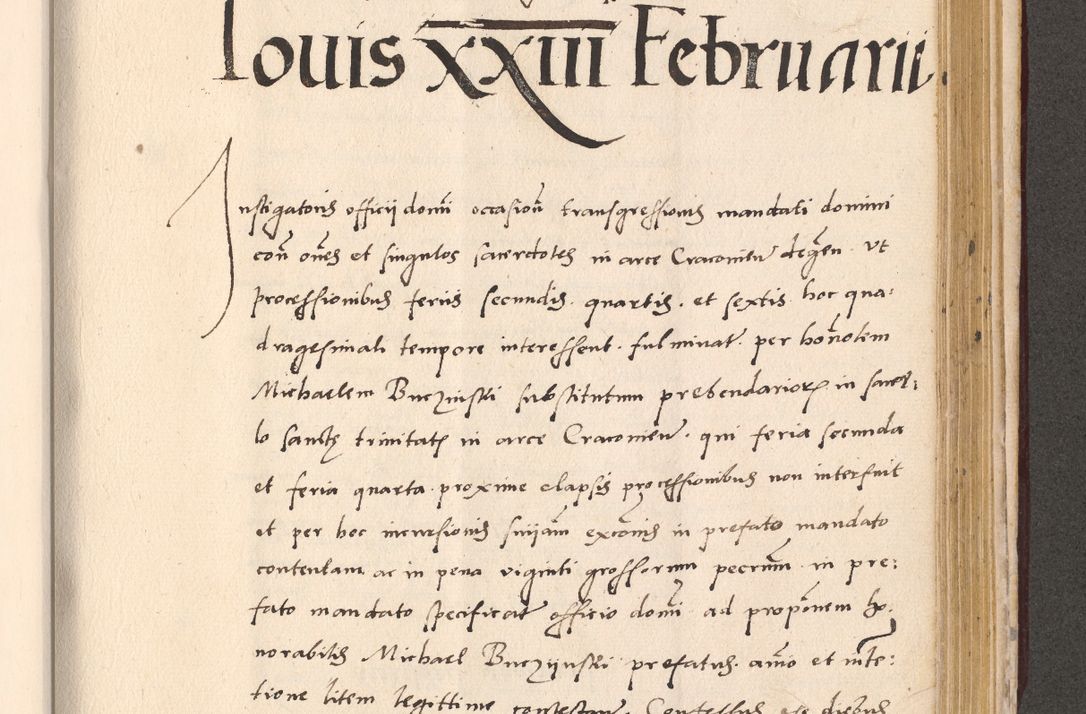 Iouis XXIII Februarii.
Instigatoris officij domi occasion transgressionis mandati domini
con ones et singulos sacerdotes in arce Cracovien degen. Ut
processionibus feriis secundis. quartis. et sextis hoc qua:
dragesimali tempore interessent. fulminat. per honotem
Michaelem Buczinski substitutum prebendariorum in sacel:
lo sancte trinitatis in arce Cracovien. qui feria secunda
et feria quarta proxime elapsis processionibus non interfuit
et per hoc incursionis snijam excomis in prefato mandato
contentam ac in pena viginti grossorum pecrum in pre:
fato mandato specificat officio domi ad proponem ho:
norabilis Michael Buczijnski prefatus. amo et inte:
tione litem legittime contestan. Confessus